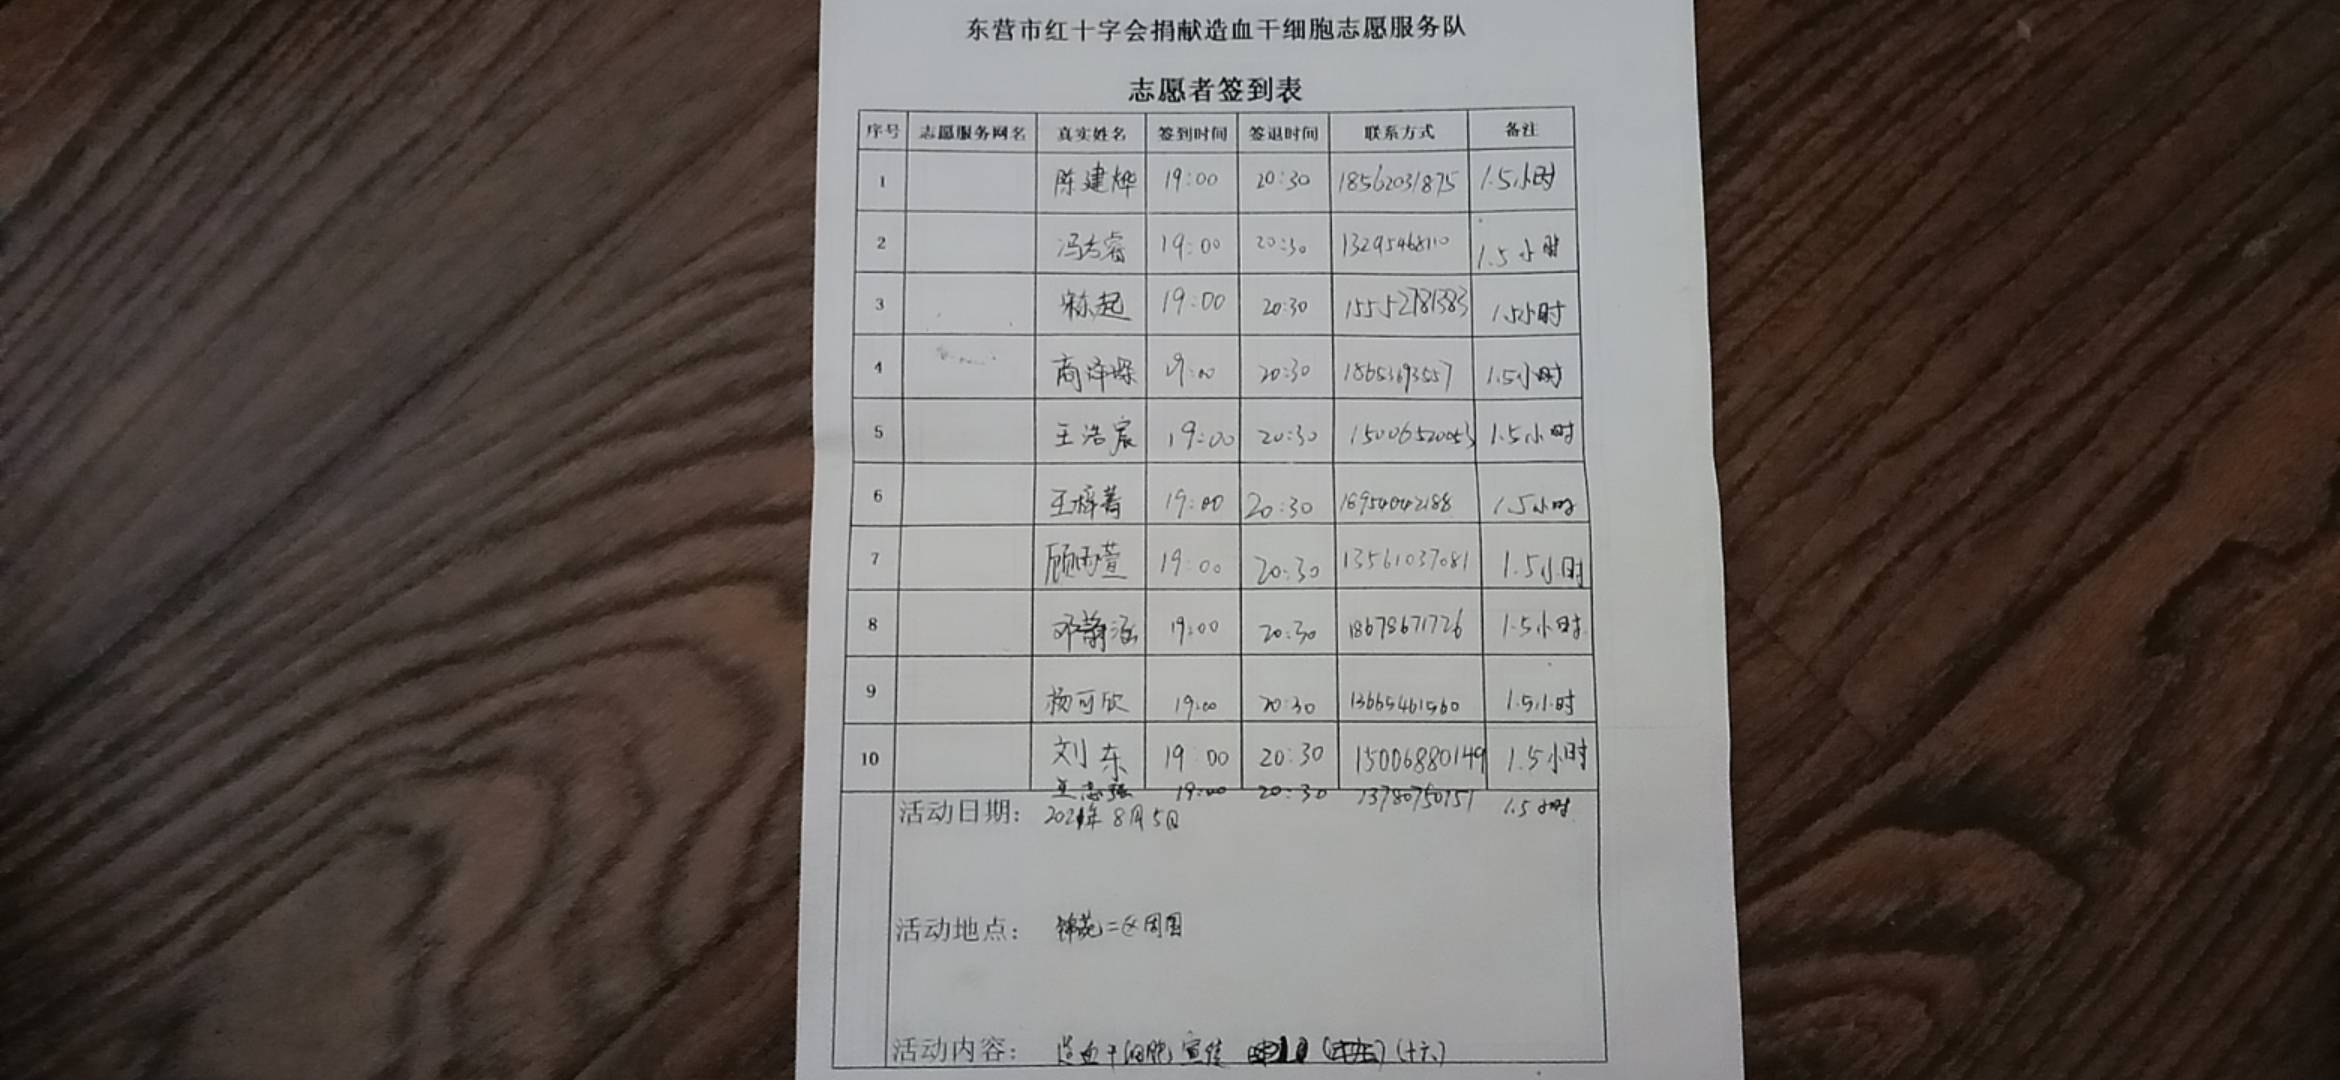 东营市红十字会捐献造血干细胞志愿服务队
志愿者签到表
序号 志愿服务网名 真实姓名 签到时间 签退时间 联系方式 备注
1 陈建烨 19:00 20:30 18562031875 1.5小时
2 冯秀睿 19:00 20:30 13295468110 1.5小时
3 宋起 19:00 20:30 15552781383 1.5小时
4 商泽琛 19:00 20:30 18653693557 1.5小时
5 王浩宸 19:00 20:30 15006520053 1.5小时
6 王梓菁 19:00 20:30 18954042188 1.5小时
7 顾雨萱 19:00 20:30 13561037081 1.5小时
8 邓蔚涵 19:00 20:30 18678671726 1.5小时
9 杨可欣 19:00 20:30 13665461560 1.5小时
10 刘东 19:00 20:30 15006880149 1.5小时
王志强 19:00 20:30 13780750151 1.5小时
活动日期： 2021年8月5日
活动地点： 锦苑二区周围
活动内容： 造血干细胞宣传 (十六)